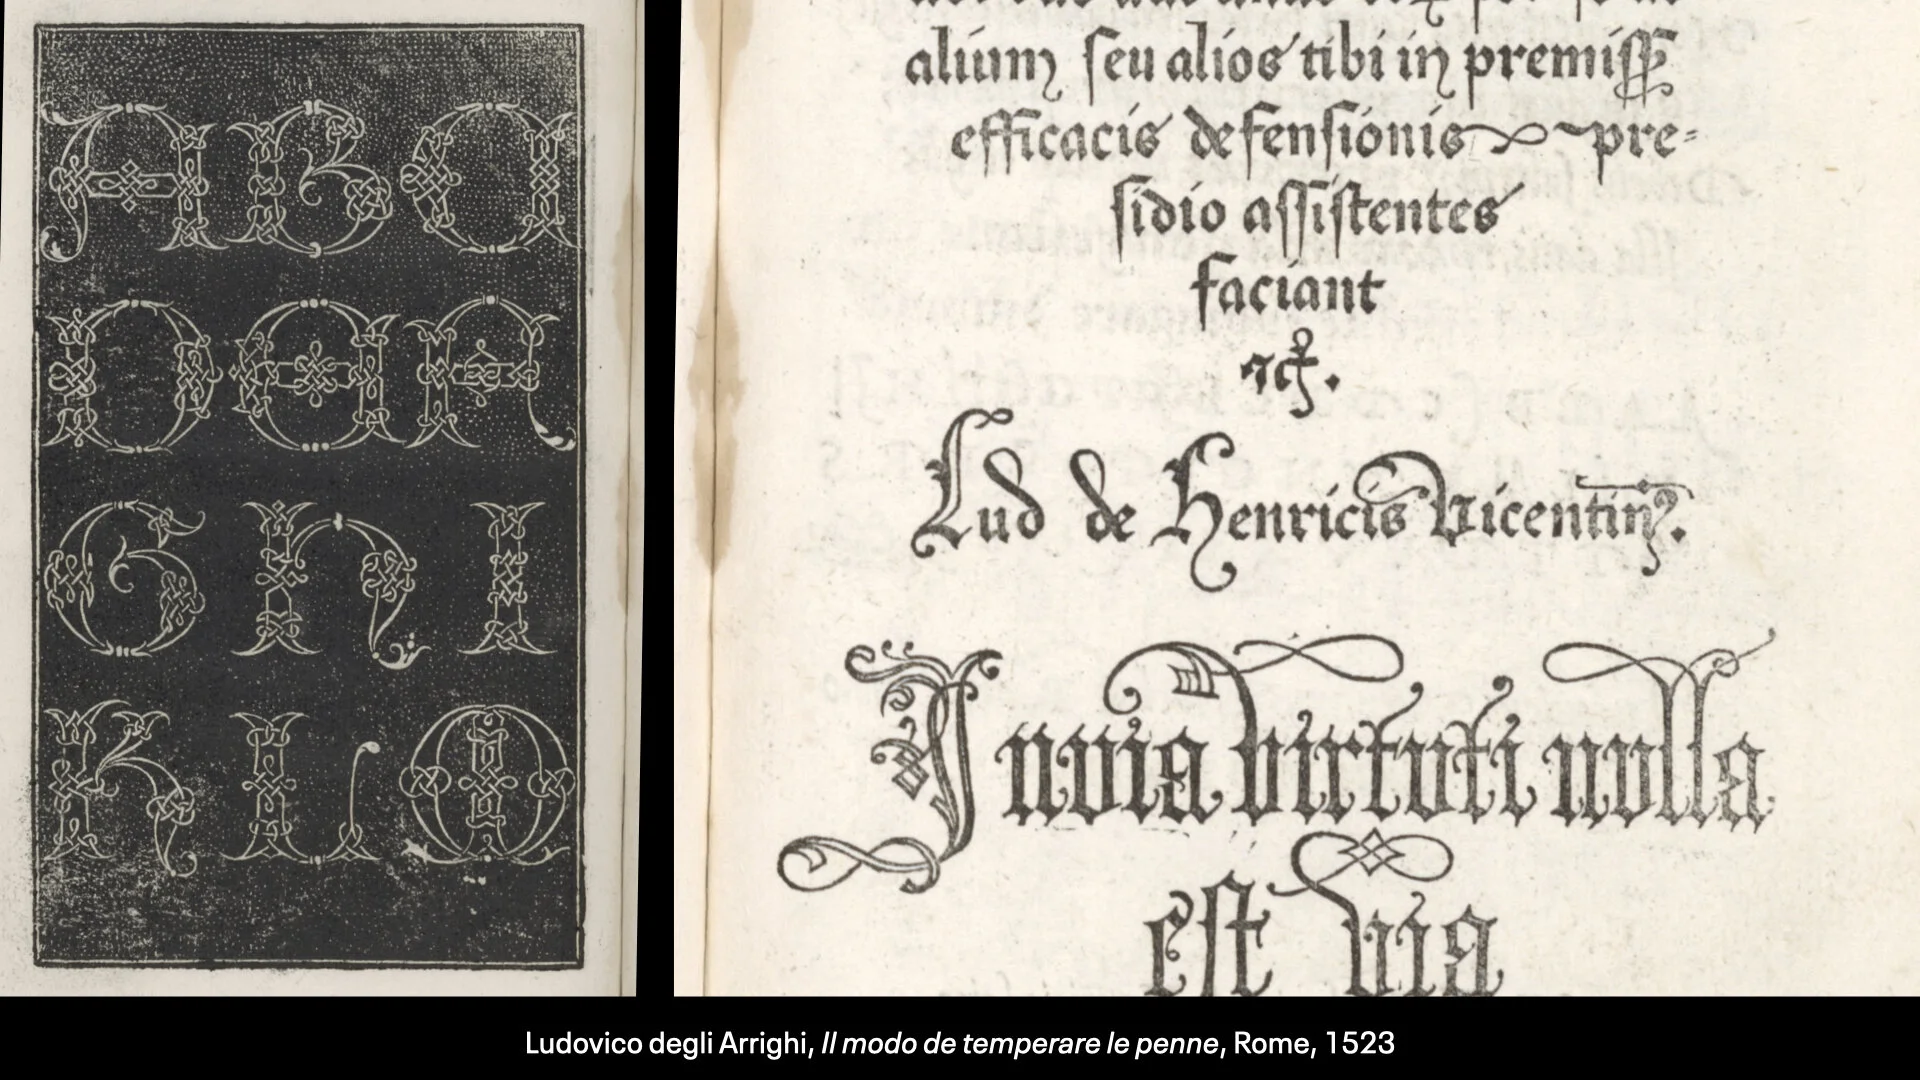 A B C
D E F
G H I
K L M
alium seu alios tibi in premiss
efficacis defensionis pre=
sidio assistentes
faciant
Lud de Henricis Vicentin9.
Invia virtuti nulla
est via
Ludovico degli Arrighi, Il modo de temperare le penne, Rome, 1523